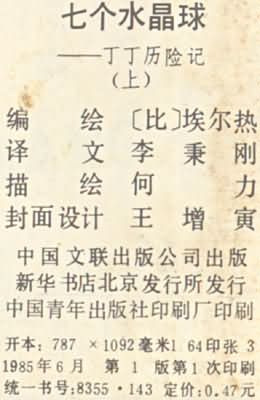 七个水晶球
——丁丁历险记
(上)
编 绘 〔比〕埃尔热
译 文 李秉刚
描 绘 何 力
封面设计 王增寅
中国文联出版公司出版
新华书店北京发行所发行
中国青年出版社印刷厂印刷
开本: 787 ×1092毫米1 64印张 3
1985年6月 第 1 版第1次印刷
统一书号:8355·143 定价:0.47元